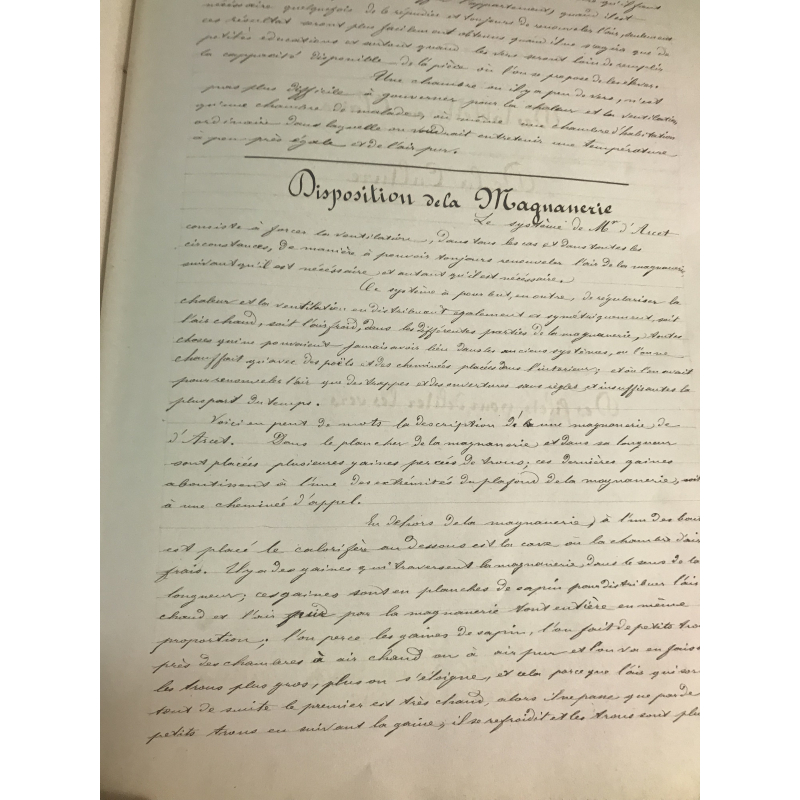 l'appartement, quand il est
nécessaire quelquefois de le répandre et toujours de renouveler l'air, seulement
ces résultat seront plus facilement obtenus quand il ne s'agira que de
petites éducations et autant quand les vers seront loin de remplir
la capacité disponible de la pièce où l'on se propose de les élever.
Une chambre ou il y a peu de vers, n'est
pas plus difficile à gouverner pour la chaleur et la ventilation
qu'une chambre de malade, ou même une chambre d'habitation
ordinaire dans laquelle on voudrait entretenir une température
à peu près égale et de l'air pur.
Disposition de la Magnanerie
Le système de Mr d'Arcet
consiste à forcer la ventilation, dans tous les cas et dans toutes les
circonstances, de manière à pouvoir toujours renouveler l'air de la magnanerie,
suivant qu'il est nécessaire et autant qu'il est nécessaire.
Ce système à pour but, en outre, de régulariser la
chaleur et la ventilation en distribuant également et symétriquement, soit
l'air chaud, soit l'air froid, dans les différentes parties de la magnanerie, toutes
choses qui ne pouvaient jamais avoir lieu dans les anciens systèmes, ou l'on ne
chauffait qu'avec des poëls et des cheminées placées dans l'interieur; et où l'on avait
pour renouveler l'air que des trappes et des ouvertures sans règles et insuffisantes la
plus part du temps.
Voici en peut de mots la description d'une magnanerie, de
d'Arcet. Dans le plancher de la magnanerie et dans sa longueur
sont placées plusieures gaines percées de trous; ces dernières gaines
aboutissent à l'une des extrémités du plafond de la magnanerie, soit
à une cheminée d'appel.
En dehors de la magnanerie, à l'un des bou
est placé le calorifère au dessous est la cave ou la chambre d'air
frais. Il y a des gaines qui traversent la magnanerie, dans le sens de la
longueur; ces gaines sont en planches de sapin pour distribuer l'air
chaud et l'air pur par la magnanerie tout entière en même
proportion; l'on perce les gaines de sapin, l'on fait de petits trou
près des chambres à air chaud ou à air pur et l'on va en faisa
les trous plus gros, plus on s'éloigne, et cela parce que l'air qui sor
tout de suite le premier est très chaud, alors il ne passe que par de
petits trous en suivant la gaine; il se refroidit et les trous sont plu